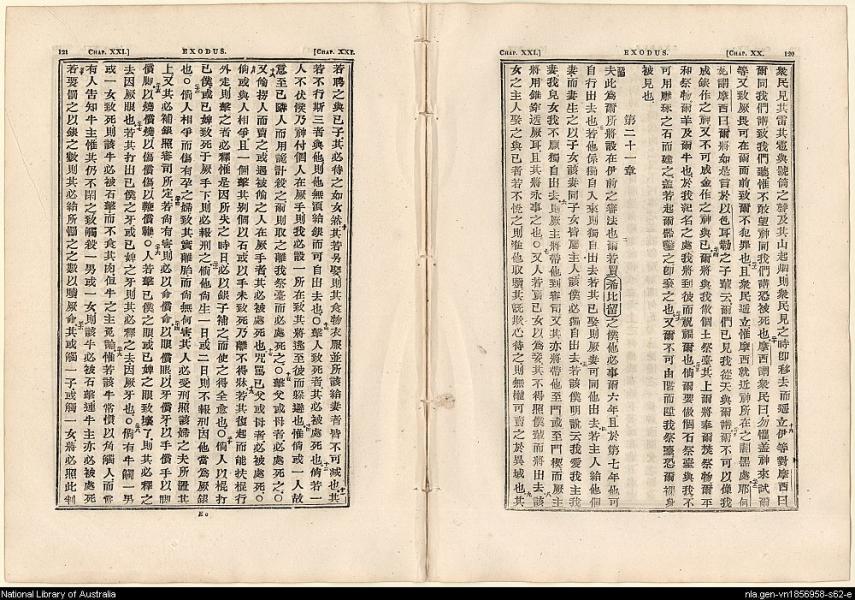 CHAP. XXI.] EXODUS. [CHAP. XX. 120
衆民見其雷其電與號筒之聲及其山起烟則衆民見之時卽移去而遠立伊等對摩西曰
爾同我們講致我們聽惟不敢望神同我們講恐被死也摩西謂衆民曰勿懼蓋神來試爾
等又致厥畏可在爾面前致爾不犯罪也且衆民遠立惟摩西就近神所在之
謂摩西曰爾將如是言於以色耳之子輩云爾們已見我從天與爾講爾不可以偕我
成銀作之神又不可成金作之神與已爾將與我做個土祭臺其上爾將奉爾燒祭物爾平
和祭物爾羊及爾牛也於我記名之處我將到彼而祝福爾也倘爾要做個石祭臺與我不
可用琢之石而建之蓋若起爾器鑿之卽褻之也又爾不可由階而陞我祭臺恐爾裸身
被見也
第二十一章
夫此爲爾所將設在伊前之審法也爾若買希比留之僕他必事爾六年且於第七年他可
自行出去也若他係獨自入來則獨自出去若其已娶則厥妻可同他出去若主人給他個
妻而妻生之以子女該妻同子女皆屬主人該僕必獨自出去若該僕明說云我愛我主我
妻我兒女我不願獨自出去則厥主將帶他到審司又其亦將帶他至門或至門楔而厥主
將用錐鑽透厥耳且其將永事之也○又人若賣已女以爲婢其不得照僕輩而將出去該
女之主人娶之與已者若不悅之則准他取贖其旣欺心待之則無權可賣之於異域也其
121 CHAP. XXI.] EXODUS. [CHAP. XXI.
若聘之與已子其必待之如女然其若另娶則其食物衣服並所該給妻者皆不可減也其
若不行斯三者與他則他無須給銀而可自出去也○擊人致死者其必被處死也倘若一
人不伏候乃神付個人在厥手則我必設一所在致其將逃至彼而躲避也惟倘或一人故
意至已隣人而用詭計殺之爾則取之離我祭臺而必處死之○擊父或母者必處死之○
又倘拐人而賣之或遇被偷之人在厥手者其必被處死也咒罵已父或母者必被處死○
倘或與人相爭且一個擊其別個以石或以手未致死乃不離不得牀若其復起而能扶棍行
外走則擊之者必釋惟是因所失之時日必以銀子補之而使之得全愈也○倘人以棍打
已僕或已婢致死于厥手下則必報刑之倘他尙生一日或二日則不報刑因他當爲厥銀
也○倘人相爭而傷有孕之婦致其離胎而尙無何害其人必受刑照該婦之夫所置其
上又其必補銀照審司所定若尙有害則必以命償命以眼償眼以牙償牙以手償手以脚
償脚以燒償燒以傷償傷以鞭償鞭○人若擊已僕之眼或已婢之眼致壞了則其必釋之
去因厥眼也若其打出已僕之牙或已婢之牙則其必釋之去因厥牙也○倘有牛觸一男
或一女致死則該牛必被石擊而不食其肉但牛之主免罪惟若該牛常慣以角觸人而嘗
有人告知牛主惟其仍不閑之致觸殺一男或一女則該牛必被石擊連牛主亦必被處死
若要償之以銀之數則其必給所償之之數以贖厥命其或觸一子或觸一女將必照此刑
National Library of Australia
nla.gen-vn1856958-s62-e